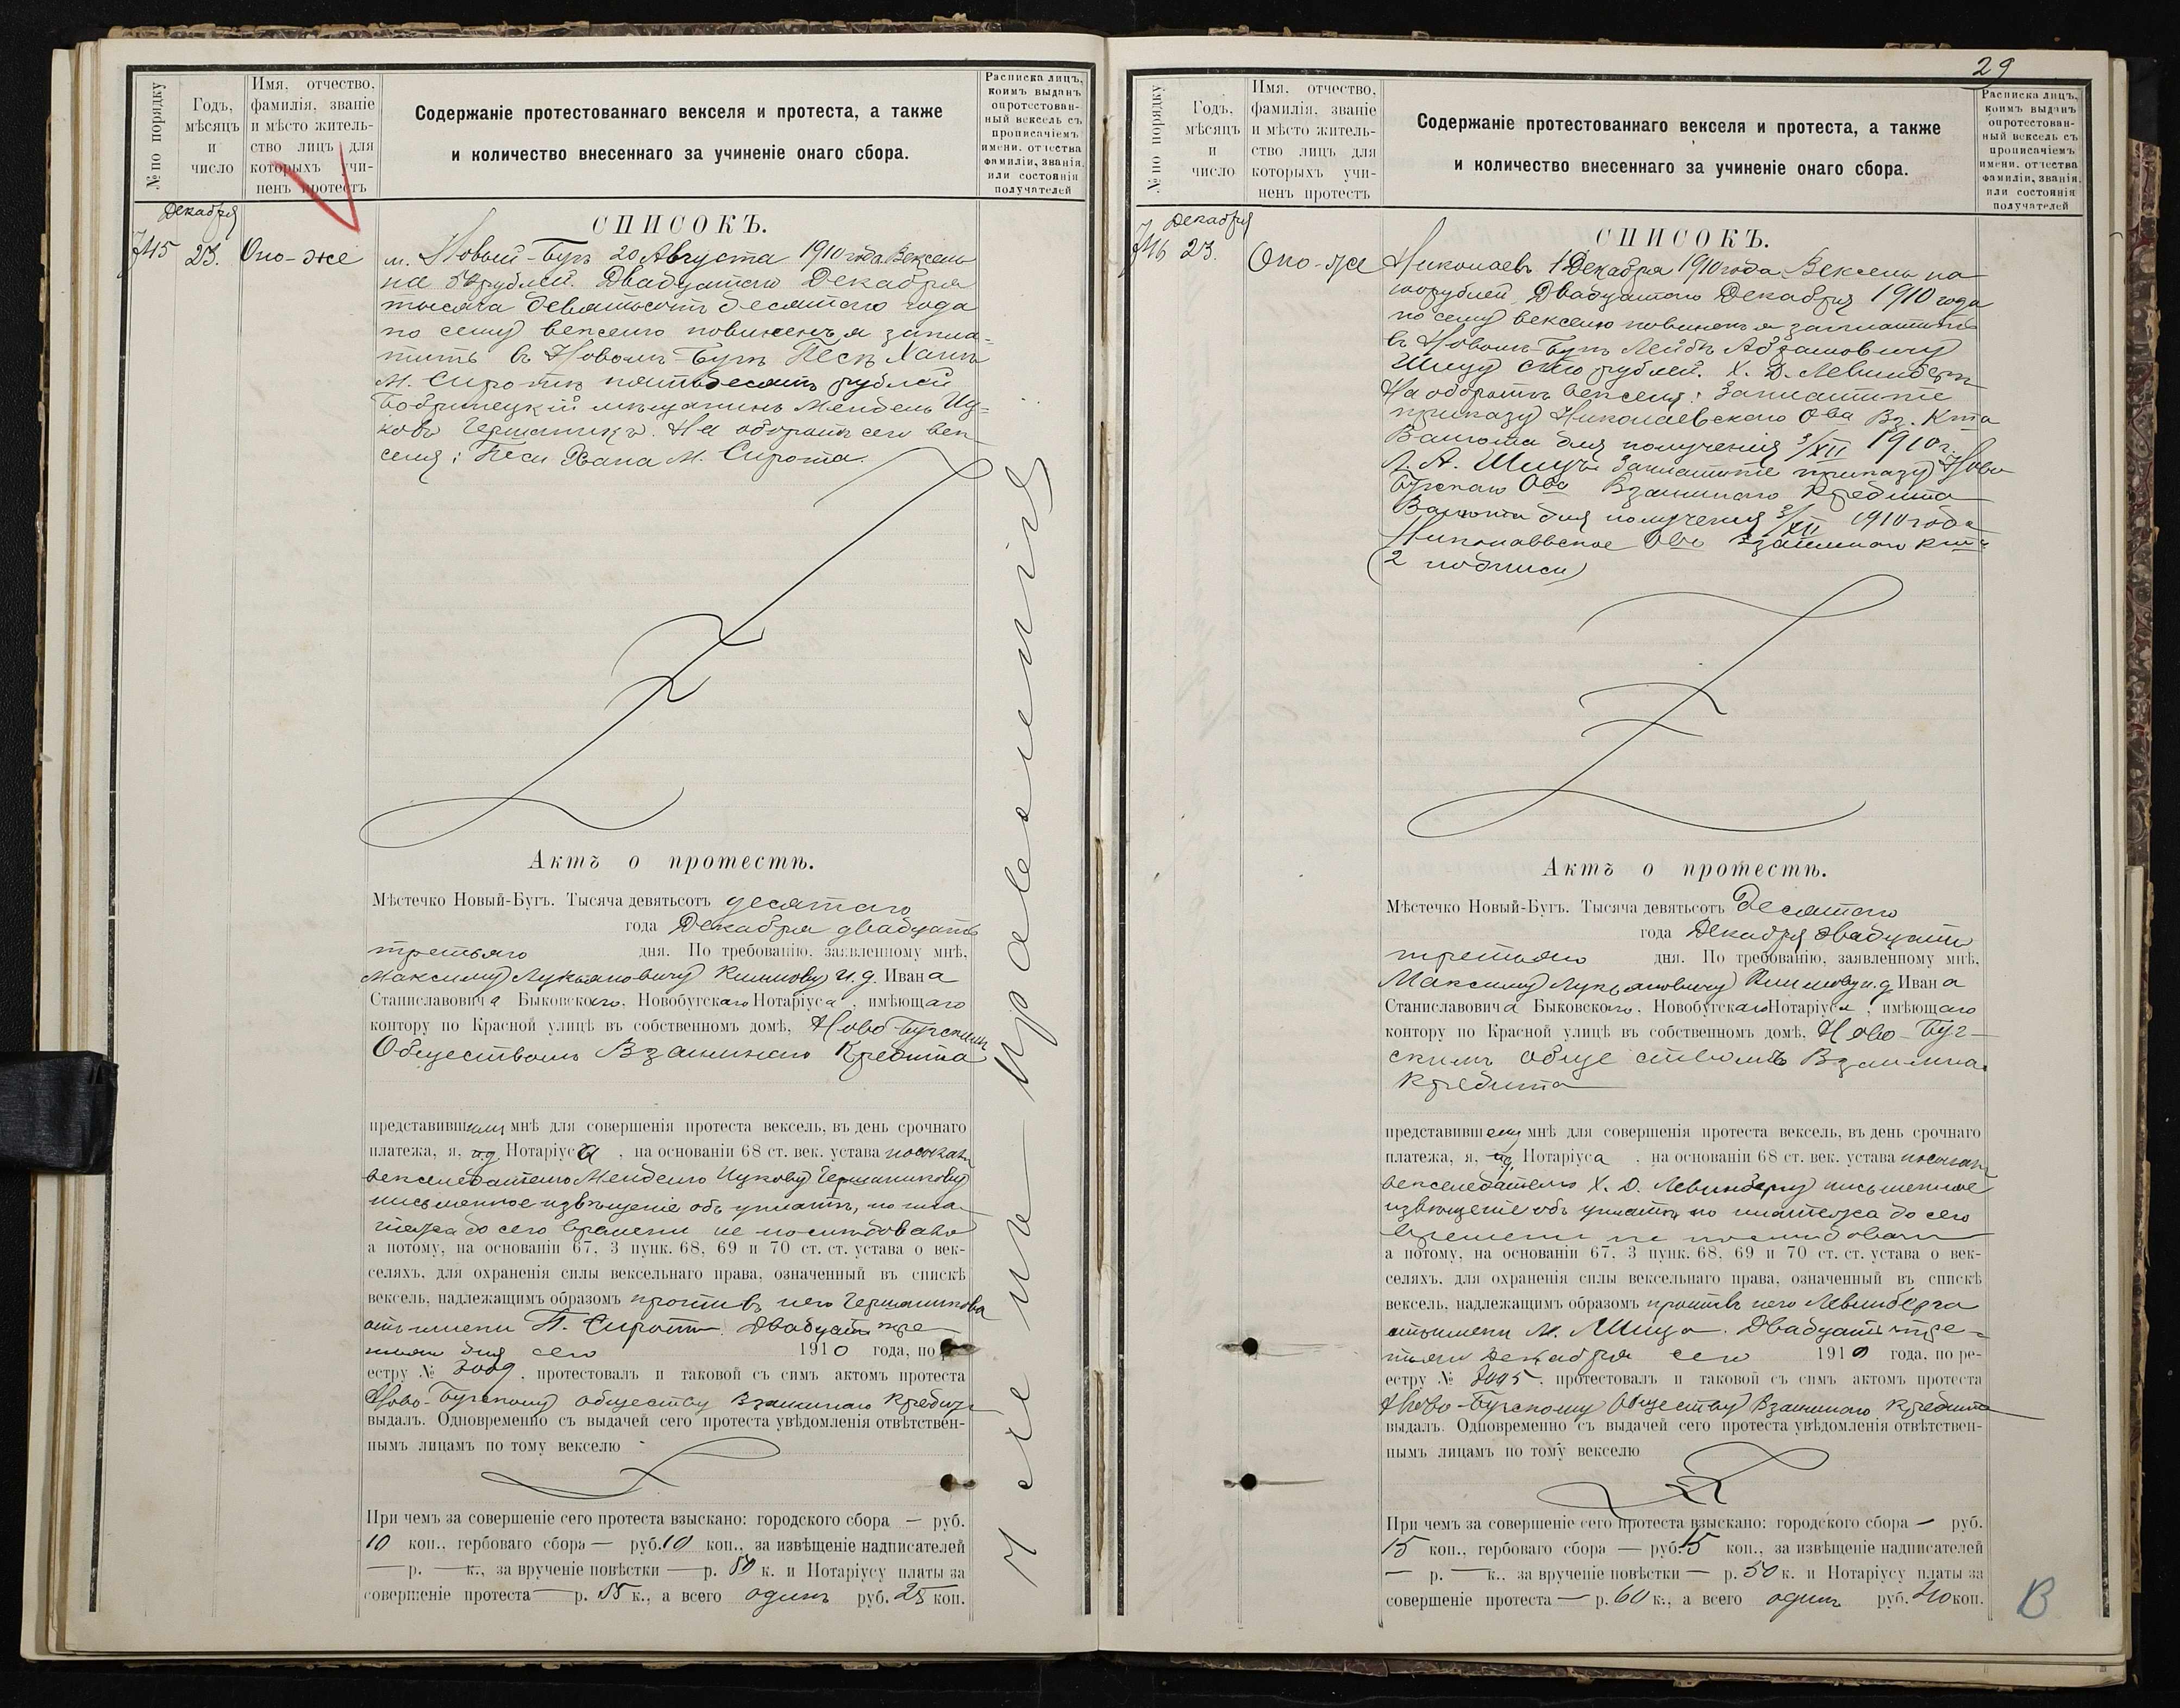 № по порядку
Годъ,
мѣсяцъ
и
число
Имя, отчество,
фамилія, званіе
и мѣсто житель-
ство лицъ для
которыхъ учи-
ненъ протестъ
Содержаніе протестованнаго векселя и протеста, а также
и количество внесеннаго за учиненіе онаго сбора.
Расписка лицъ,
коимъ выданъ
опротестован-
ный вексель съ
прописаніемъ
имени, отчества
фамиліи, званія,
или состоянія
получателей
Декабря
23.
Оно-же
СПИСОКЪ.
м. Новый-Бугъ 20 Августа 1910 года Вексель
на 50 рублей. Двадцатаго Декабря
тысяча девятьсотъ десятаго года
по сему векселю повиненъ я запла-
тить въ Новомъ-Бугѣ Песѣ Ханѣ
М. Сиротѣ пятьдесятъ рублей
Бобринецкій мѣщанинъ Мендель Иц-
ковъ. На оборотѣ сего век-
селя: Песи Хана М. Сирота.
Актъ о протестѣ.
Мѣстечко Новый-Бугъ. Тысяча девятьсотъ десятаго
года Декабря двадцать
третьяго дня. По требованію, заявленному мнѣ,
Максиму Лукьяновичу и.д. Ивана
Станиславовича Быковскаго, Новобугскаго Нотаріуса, имѣющаго
контору по Красной улицѣ въ собственномъ домѣ, Ново-Бугскимъ
Обществомъ Взаимнаго Кредита
представившимъ мнѣ для совершенія протеста вексель, въ день срочнаго
платежа, я, и.д. Нотаріуса, на основаніи 68 ст. век. устава послалъ
векселедателю Менделю Ицкову
письменное извѣщеніе объ уплатѣ, но пла-
тежа до сего времени не послѣдовало
а потому, на основаніи 67, 3 пунк. 68, 69 и 70 ст. ст. устава о век-
селяхъ, для охраненія силы вексельнаго права, означенный въ спискѣ
вексель, надлежащимъ образомъ противъ него
отъ имени П. Сироты. Двадцать тре-
тьяго дня сего 1910 года, по р
естру №, протестовалъ и таковой съ симъ актомъ протеста
Ново-Бугскому обществу Взаимнаго Кредита
выдалъ. Одновременно съ выдачей сего протеста увѣдомленія отвѣтствен-
нымъ лицамъ по тому векселю
При чемъ за совершеніе сего протеста взыскано: городского сбора — руб.
10 коп., гербоваго сбора — руб. 10 коп., за извѣщеніе надписателей
— р. — к., за врученіе повѣстки — р. 50 к. и Нотаріусу платы за
совершеніе протеста — р. 55 к., а всего одинъ руб. 25 коп.
29
№ по порядку
Годъ,
мѣсяцъ
и
число
Имя, отчество,
фамилія, званіе
и мѣсто житель-
ство лицъ для
которыхъ учи-
ненъ протестъ
Содержаніе протестованнаго векселя и протеста, а также
и количество внесеннаго за учиненіе онаго сбора.
Расписка лицъ,
коимъ выданъ
опротестован-
ный вексель съ
прописаніемъ
имени, отчества
фамиліи, званія,
или состоянія
получателей
Декабря
23.
Оно-же
СПИСОКЪ.
Николаевъ 1 Декабря 1910 года Вексель на
100 рублей. Двадцатаго Декабря 1910 года
по сему векселю повиненъ я заплатить
въ Новомъ-Бугѣ Лейбѣ Абрамовичу
Шицу сто рублей. Х. Д. Левинбергъ
На оборотѣ векселя: Заплатите
приказу Николаевскаго Ова Вз. Кта
Валюта для полученія 3/XII 1910 г.
Л. А. Шицъ Заплатите приказу Ново
Бугскаго Ова Взаимнаго Кредита
Валюта для полученія 3/XII 1910 года
Николаевское Ово Взаимнаго Кта
(2 подписи)
Актъ о протестѣ.
Мѣстечко Новый-Бугъ. Тысяча девятьсотъ Десятаго
года Декабря двадцать
третьяго дня. По требованію, заявленному мнѣ,
Максиму Лукьяновичу и.д. Ивана
Станиславовича Быковскаго, Новобугскаго Нотаріуса, имѣющаго
контору по Красной улицѣ въ собственномъ домѣ, Ново-Буг-
скимъ обществомъ Взаимна
Кредита
представившему мнѣ для совершенія протеста вексель, въ день срочнаго
платежа, я, и.д. Нотаріуса, на основаніи 68 ст. век. устава послалъ
векселедателю Х. Д. Левинбергу письменное
извѣщеніе объ уплатѣ но платежа до сего
времени не послѣдовало
а потому, на основаніи 67, 3 пунк. 68, 69 и 70 ст. ст. устава о век-
селяхъ, для охраненія силы вексельнаго права, означенный въ спискѣ
вексель, надлежащимъ образомъ противъ него Левинберга
отъ имени Шица. Двадцать тре-
тьяго Декабря сего 1910 года, по ре-
естру №, протестовалъ и таковой съ симъ актомъ протеста
Ново-Бугскому Обществу Взаимнаго Кредита
выдалъ. Одновременно съ выдачей сего протеста увѣдомленія отвѣтствен-
нымъ лицамъ по тому векселю
При чемъ за совершеніе сего протеста взыскано: городского сбора — руб.
15 коп., гербоваго сбора — руб. 15 коп., за извѣщеніе надписателей
— р. — к., за врученіе повѣстки — р. 50 к. и Нотаріусу платы за
совершеніе протеста — р. 60 к., а всего одинъ руб. 40 коп.
В